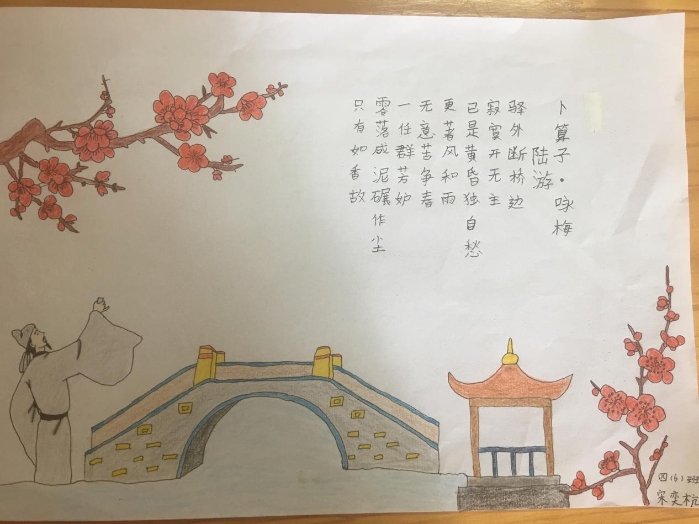 卜算子·咏梅
陆游
驿外断桥边
寂寞开无主
已是黄昏独自愁
更著风和雨
无意苦争春
一任群芳妒
零落成泥碾作尘
只有如香故
四(6)班
宋奕杭